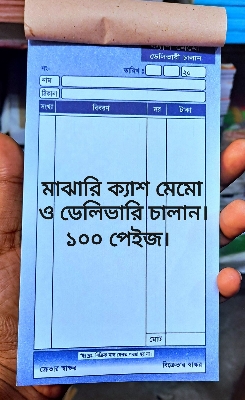 ক্যাশ মেমো
ডেলিভারী চালান
নং-
তারিখ ঃ
২০
নাম
ঠিকানা
সংখ্যা বিবরন দর টাকা
মাঝারি ক্যাশ মেমো
ও ডেলিভারি চালান।
১০০ পেইজ।
মোট
ক্রেতার স্বাক্ষর বিক্রেতার স্বাক্ষর